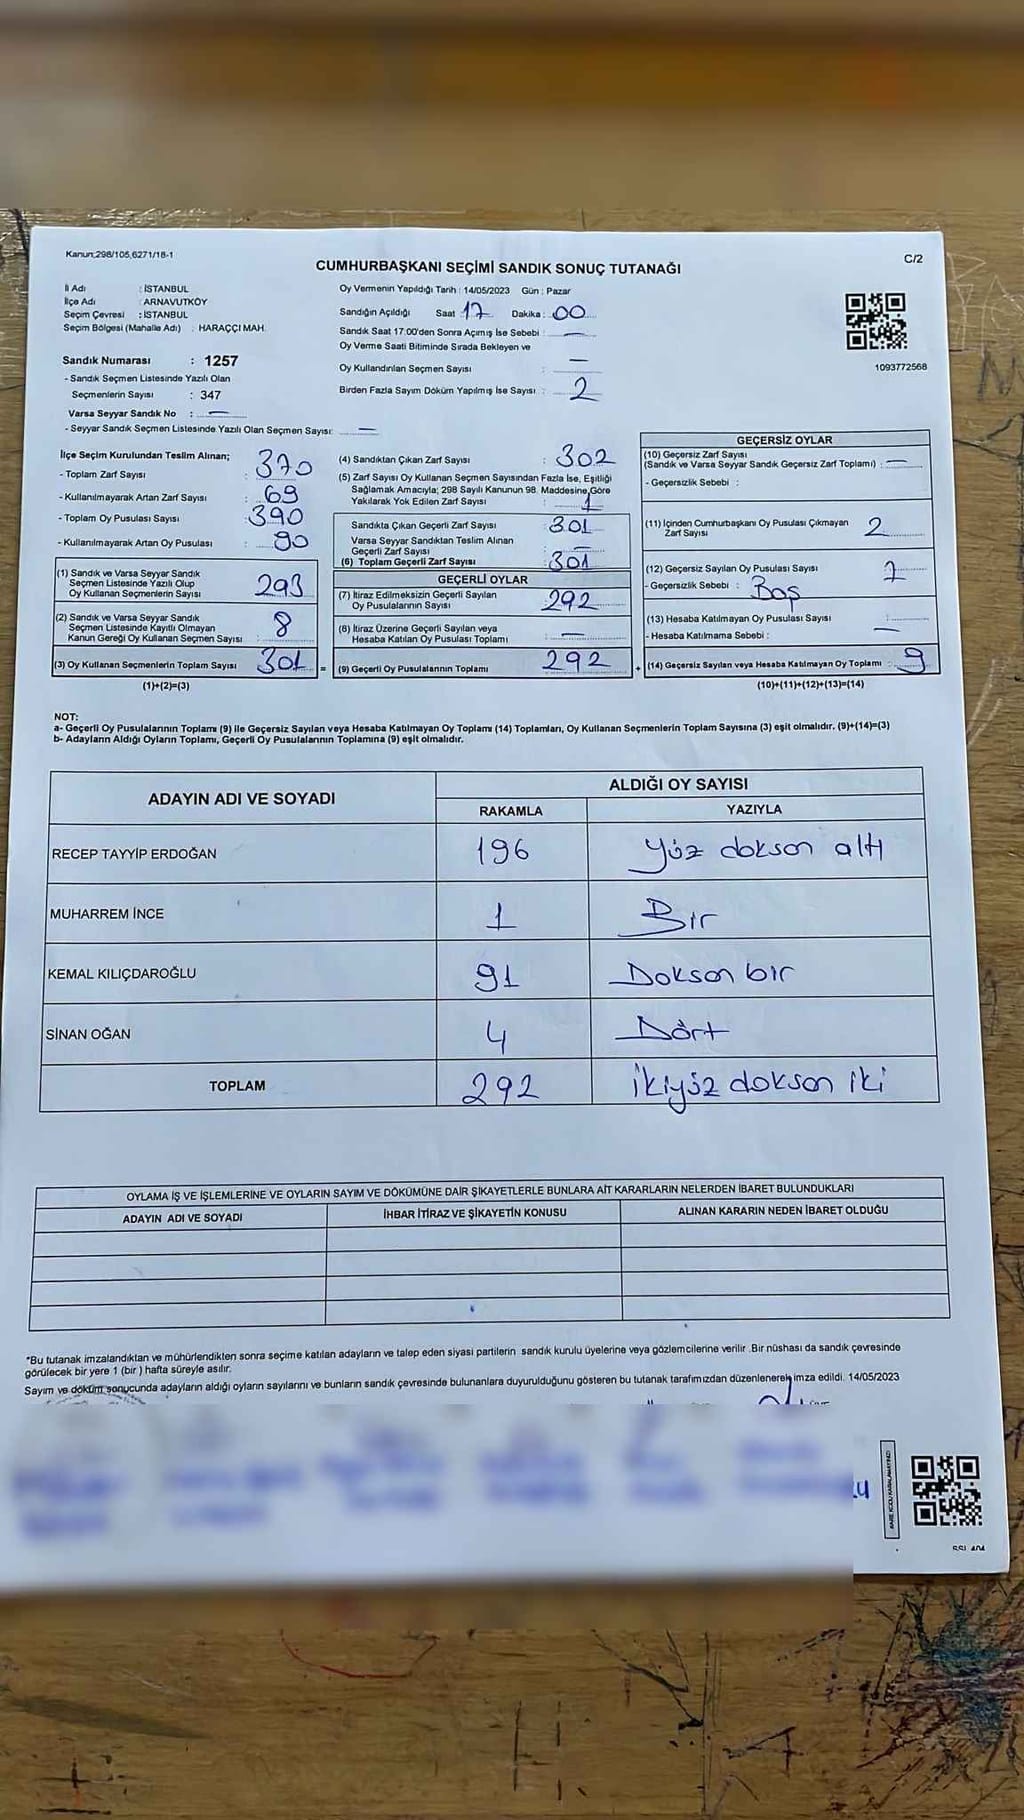 Kanun;298/105,6271/18-1
C/2
CUMHURBAŞKANI SEÇİMİ SANDIK SONUÇ TUTANAĞI
İl Adı : İSTANBUL
İlçe Adı : ARNAVUTKÖY
Seçim Çevresi : İSTANBUL
Seçim Bölgesi (Mahalle Adı) : HARAÇÇI MAH.
Sandık Numarası : 1257
- Sandık Seçmen Listesinde Yazılı Olan
Seçmenlerin Sayısı : 347
Varsa Seyyar Sandık No : —
- Seyyar Sandık Seçmen Listesinde Yazılı Olan Seçmen Sayısı: —
Oy Vermenin Yapıldığı Tarih : 14/05/2023 Gün : Pazar
Sandığın Açıldığı Saat : 17 Dakika : 00
Sandık Saat 17:00'den Sonra Açımış İse Sebebi : —
Oy Verme Saati Bitiminde Sırada Bekleyen ve
Oy Kullandırılan Seçmen Sayısı : —
Birden Fazla Sayım Döküm Yapılmış İse Sayısı : 2
1093772568
İlçe Seçim Kurulundan Teslim Alınan;
- Toplam Zarf Sayısı : 370
- Kullanılmayarak Artan Zarf Sayısı : 69
- Toplam Oy Pusulası Sayısı : 390
- Kullanılmayarak Artan Oy Pusulası : 90
(1) Sandık ve Varsa Seyyar Sandık
Seçmen Listesinde Yazılı Olup
Oy Kullanan Seçmenlerin Sayısı : 293
(2) Sandık ve Varsa Seyyar Sandık
Seçmen Listesinde Kayıtlı Olmayan
Kanun Gereği Oy Kullanan Seçmen Sayısı : 8
(3) Oy Kullanan Seçmenlerin Toplam Sayısı : 301
(1)+(2)=(3)
(4) Sandıktan Çıkan Zarf Sayısı : 302
(5) Zarf Sayısı Oy Kullanan Seçmen Sayısından Fazla İse, Eşitliği
Sağlamak Amacıyla; 298 Sayılı Kanunun 98. Maddesine Göre
Yakılarak Yok Edilen Zarf Sayısı : 1
Sandıkta Çıkan Geçerli Zarf Sayısı : 301
Varsa Seyyar Sandıktan Teslim Alınan
Geçerli Zarf Sayısı : —
(6) Toplam Geçerli Zarf Sayısı : 301
GEÇERLİ OYLAR
(7) İtiraz Edilmeksizin Geçerli Sayılan
Oy Pusulalarının Sayısı : 292
(8) İtiraz Üzerine Geçerli Sayılan veya
Hesaba Katılan Oy Pusulası Toplamı : —
= (9) Geçerli Oy Pusulalarının Toplamı : 292
GEÇERSİZ OYLAR
(10) Geçersiz Zarf Sayısı
(Sandık ve Varsa Seyyar Sandık Geçersiz Zarf Toplamı) : —
- Geçersizlik Sebebi :
(11) İçinden Cumhurbaşkanı Oy Pusulası Çıkmayan
Zarf Sayısı : 2
(12) Geçersiz Sayılan Oy Pusulası Sayısı : 7
- Geçersizlik Sebebi : Boş
(13) Hesaba Katılmayan Oy Pusulası Sayısı : —
- Hesaba Katılmama Sebebi :
+ (14) Geçersiz Sayılan veya Hesaba Katılmayan Oy Toplamı : 9
(10)+(11)+(12)+(13)=(14)
NOT:
a- Geçerli Oy Pusulalarının Toplamı (9) ile Geçersiz Sayılan veya Hesaba Katılmayan Oy Toplamı (14) Toplamları, Oy Kullanan Seçmenlerin Toplam Sayısına (3) eşit olmalıdır. (9)+(14)=(3)
b- Adayların Aldığı Oyların Toplamı, Geçerli Oy Pusulalarının Toplamına (9) eşit olmalıdır.
ADAYIN ADI VE SOYADI
ALDIĞI OY SAYISI
RAKAMLA YAZIYLA
RECEP TAYYİP ERDOĞAN 196 Yüz dokson altı
MUHARREM İNCE 1 Bir
KEMAL KILIÇDAROĞLU 91 Dokson bir
SİNAN OĞAN 4 Dört
TOPLAM 292 ikiyüz dokson iki
OYLAMA İŞ VE İŞLEMLERİNE VE OYLARIN SAYIM VE DÖKÜMÜNE DAİR ŞİKAYETLERLE BUNLARA AİT KARARLARIN NELERDEN İBARET BULUNDUKLARI
ADAYIN ADI VE SOYADI İHBAR İTİRAZ VE ŞİKAYETİN KONUSU ALINAN KARARIN NEDEN İBARET OLDUĞU
*Bu tutanak imzalandıktan ve mühürlendikten sonra seçime katılan adayların ve talep eden siyasi partilerin sandık kurulu üyelerine veya gözlemcilerine verilir .Bir nüshası da sandık çevresinde
görülecek bir yere 1 (bir ) hafta süreyle asılır.
Sayım ve döküm sonucunda adayların aldığı oyların sayılarını ve bunların sandık çevresinde bulunanlara duyurulduğunu gösteren bu tutanak tarafımızdan düzenlenerek imza edildi. 14/05/2023